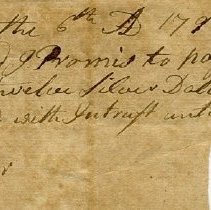 the 6th AD 179
d I Promis to pa
welve Silver Doll
with Intrust unt
r